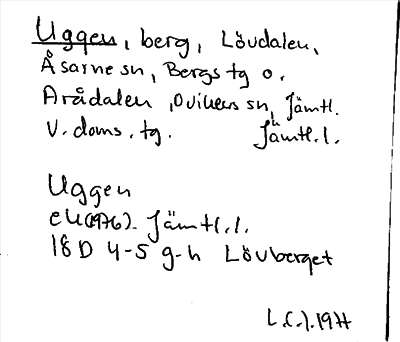 Uggen, berg, Lövdalen,
Åsarne sn, Bergs tg o.
Arådalen, Ovikens sn, Jämtl.
V. doms. tg. Jämtl. l.
Uggen
ek (1976). Jämtl. l.
18D 4-5 g-h Lövberget